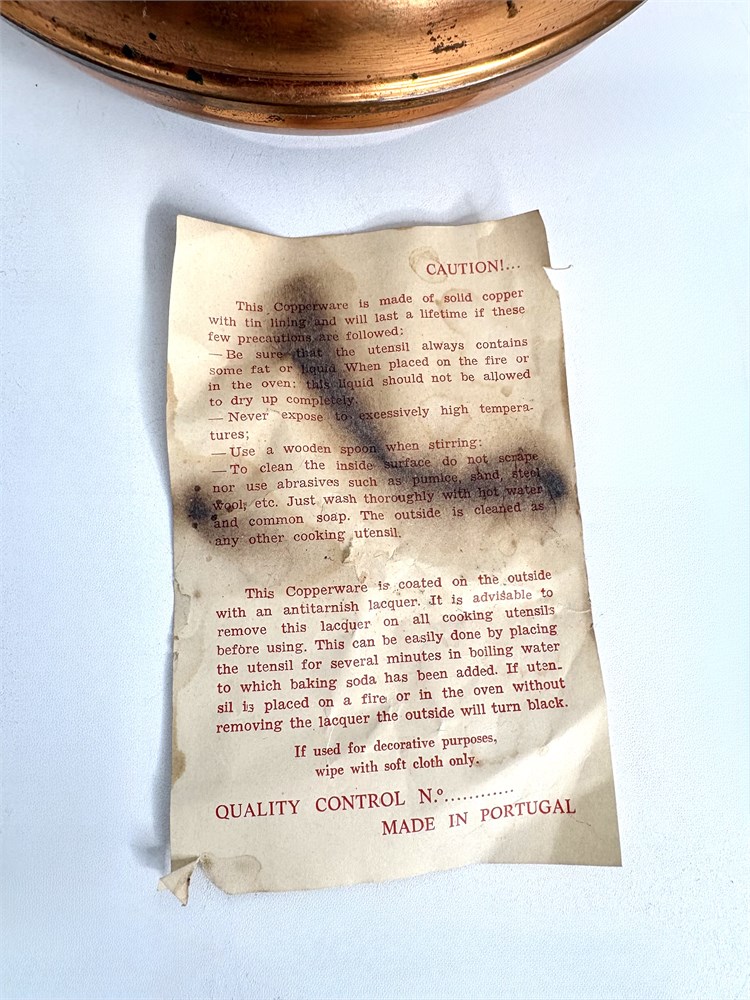 CAUTION!...
This Copperware is made of solid copper
with tin lining and will last a lifetime if these
few precautions are followed:
— Be sure that the utensil always contains
some fat or liquid. When placed on the fire or
in the oven: this liquid should not be allowed
to dry up completely.
— Never expose to excessively high tempera-
tures;
— Use a wooden spoon when stirring:
— To clean the inside surface do not scrape
nor use abrasives such as pumice, sand, steel
wool, etc. Just wash thoroughly with hot water
and common soap. The outside is cleaned as
any other cooking utensil.
This Copperware is coated on the outside
with an antitarnish lacquer. It is advisable to
remove this lacquer on all cooking utensils
before using. This can be easily done by placing
the utensil for several minutes in boiling water
to which baking soda has been added. If uten-
sil is placed on a fire or in the oven without
removing the lacquer the outside will turn black.
If used for decorative purposes,
wipe with soft cloth only.
QUALITY CONTROL N.º............
MADE IN PORTUGAL